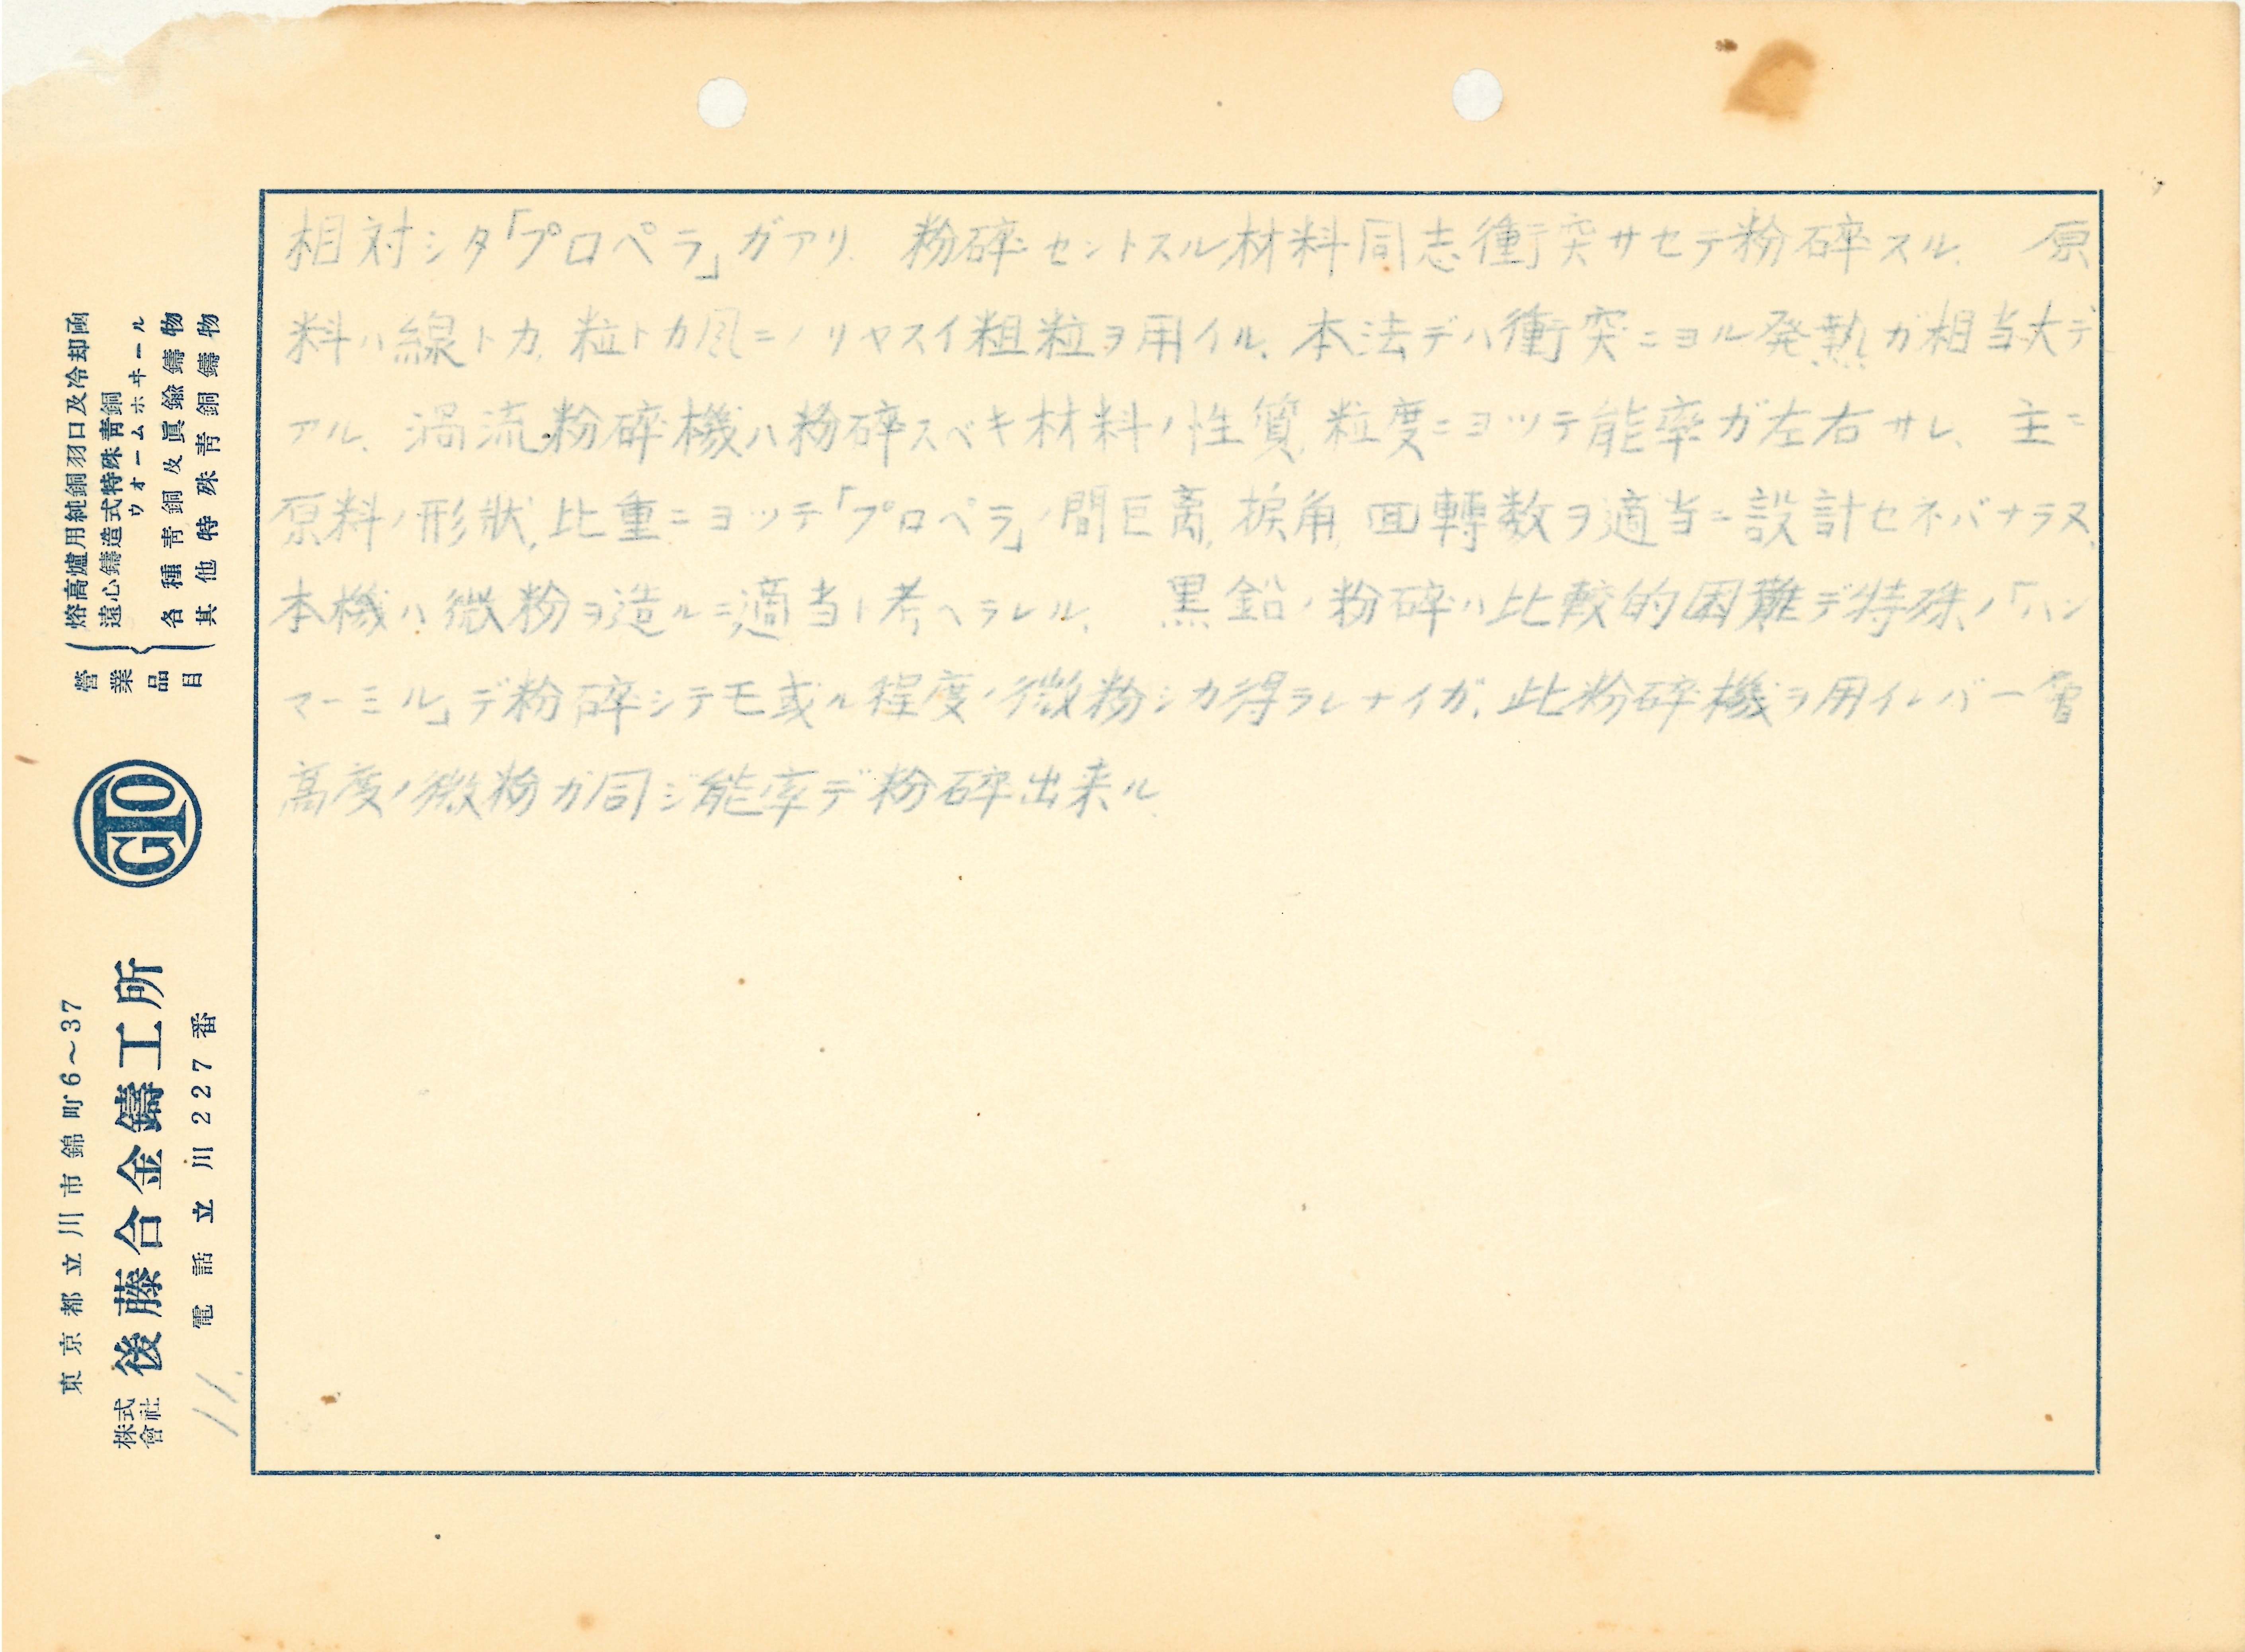 相対シタ「プロペラ」ガアリ、粉碎セントスル材料同志衝突サセテ粉碎スル、原
料ハ線トカ、粒トカ風ニノリヤスイ粗粒ヲ用イル、本法デハ衝突ニヨル発熱ガ相当大デ
アル、渦流粉碎機ハ粉碎スベキ材料ノ性質、粒度ニヨツテ能率ガ左右サレ、主ニ
原料ノ形狀、比重ニヨツテ「プロペラ」ノ間巨离、捩角、回轉数ヲ適当ニ設計セネバナラヌ、
本機ハ微粉ヲ造ルニ適当ト考ヘラレル、黒鉛ノ粉碎ハ比較的困難デ特殊ノ「ハン
マーミル」デ粉碎シテモ或ル程度ノ微粉シカ得ラレナイガ、此粉碎機ヲ用イレバ一層
高度ノ微粉ガ同ジ能率デ粉碎出来ル
營業品目
熔高爐用純銅羽口及冷却函
遠心鑄造式特殊靑銅
ウオームホヰール
各種靑銅及眞鍮鑄物
其他特殊靑銅鑄物
GTO
東京都立川市錦町6～37
株式會社 後藤合金鑄工所
電話立川227番
11.